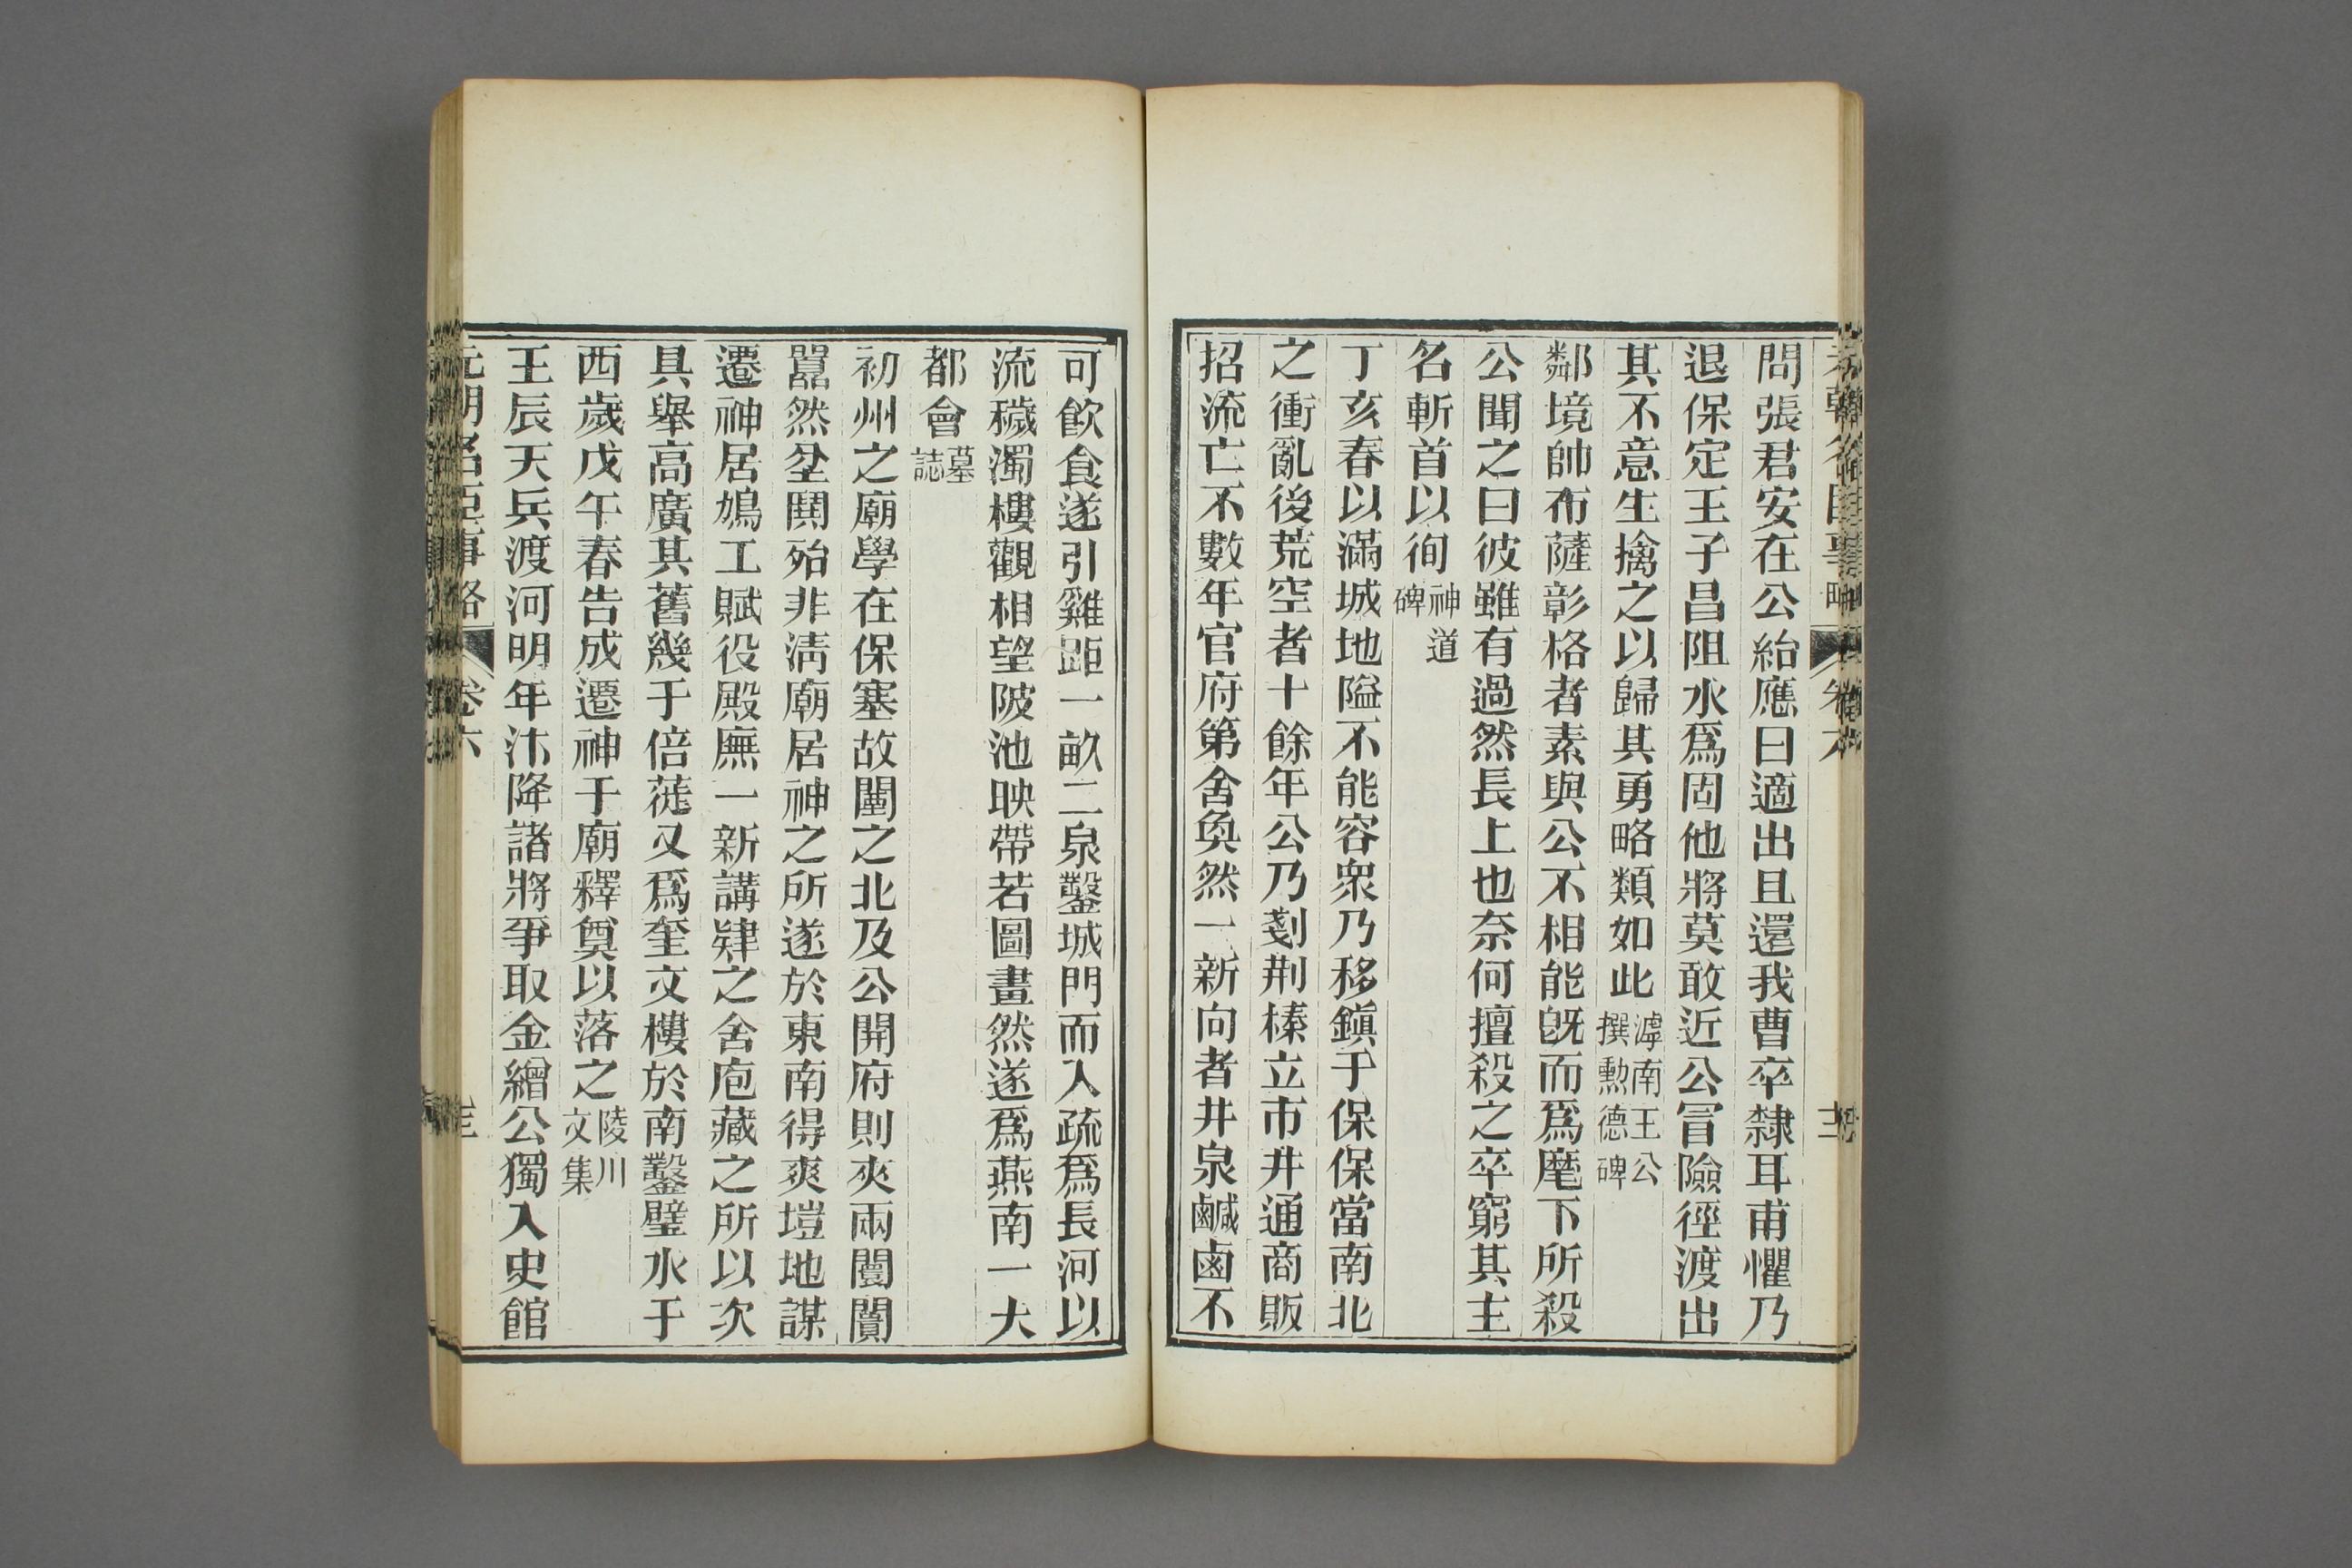 問張君安在公紿應曰適出且還我曹卒隸耳甫懼乃
退保定王子昌阻水爲固他將莫敢近公冒險徑渡出
其不意生擒之以歸其勇略類如此滹南王公撰勳德碑
鄰境帥布薩彰格者素與公不相能旣而爲麾下所殺
公聞之曰彼雖有過然長上也奈何擅殺之卒窮其主
名斬首以徇神道碑
丁亥春以滿城地隘不能容衆乃移鎭于保保當南北
之衝亂後荒空者十餘年公乃剗荆榛立市井通商販
招流亡不數年官府第舍奐然一新向者井泉鹹鹵不
可飲食遂引雞距一畝二泉鑿城門而入疏爲長河以
流穢濁樓觀相望陂池映帶若圖畫然遂爲燕南一大
都會墓誌
初州之廟學在保塞故闉之北及公開府則夾兩闤闠
囂然坌鬨殆非淸廟居神之所遂於東南得爽塏地謀
遷神居鳩工賦役殿廡一新講肄之舍庖藏之所以次
具舉高廣其舊幾于倍蓰又爲奎文樓於南鑿璧水于
西歲戊午春告成遷神于廟釋奠以落之陵川文集
壬辰天兵渡河明年汴降諸將爭取金繒公獨入史館
卷六